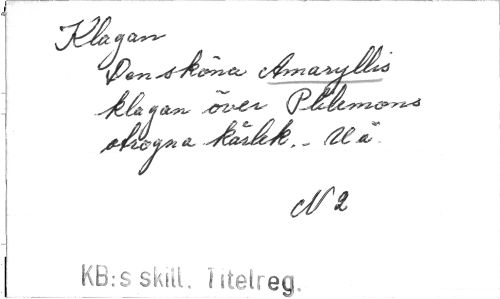 Klagan
Den sköna Amaryllis
klagan över Philemons
otrogna kärlek. - U ä.
N 2
KB:s skill. Titelreg.